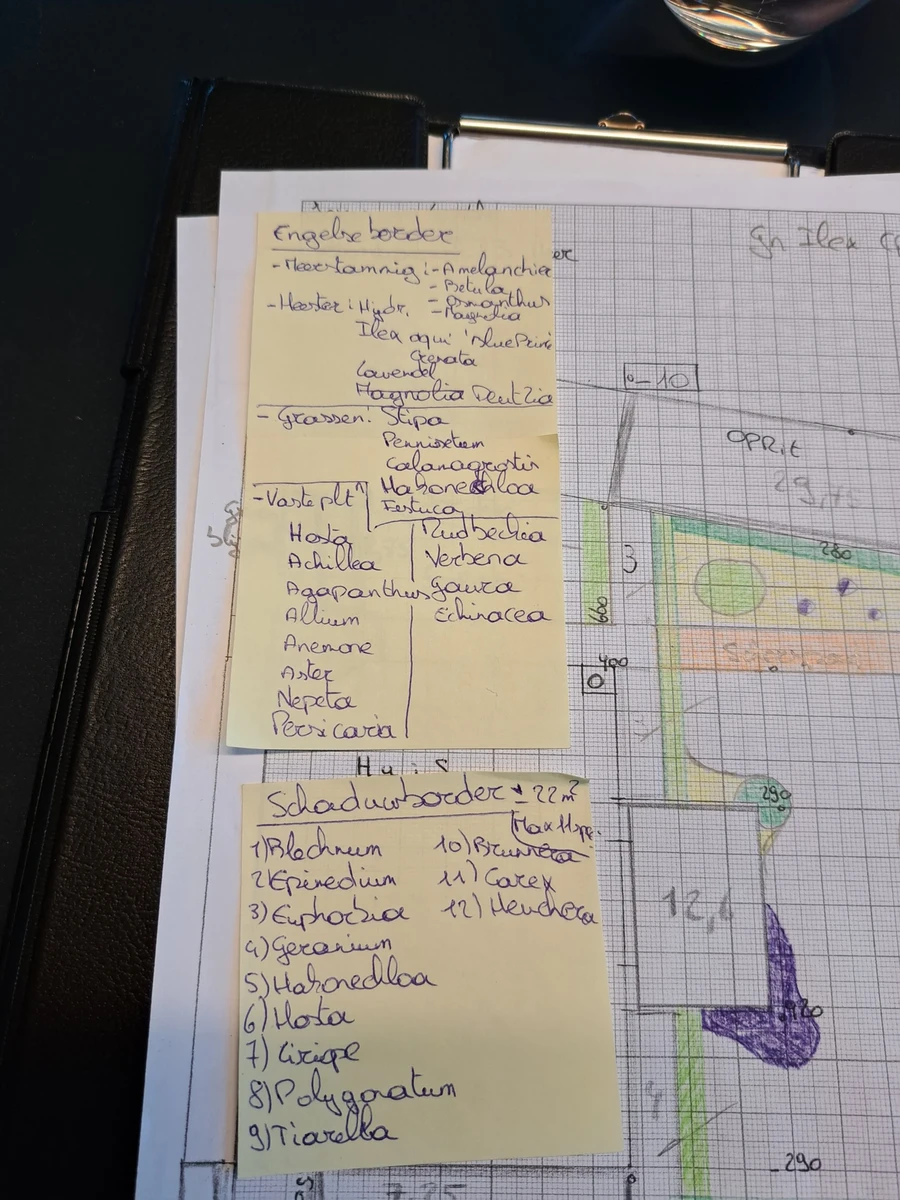 Engelse border
- Meerstammig: - Amelanchier
- Betula
- Osmanthus
- Heester: Hydr. - Magnolia
Ilex aqui 'Blue Prin
Crenata
Lavendel
Magnolia Deutzia
- Grassen: Stipa
Pennisetum
Calamagrostis
Hakonechloa
Festuca
- Vaste plt
Hosta
Achillea
Agapanthus
Allium
Anemone
Aster
Nepeta
Persicaria
Rudbeckia
Verbena
Gaura
Echinacea
Schaduwborder ± 22 m²
Max 11 spe.
1) Blechnum
2) Epimedium
3) Euphorbia
4) Geranium
5) Hakonechloa
6) Hosta
7) Liriope
8) Polygonatum
9) Tiarella
10) Brunnera
11) Carex
12) Heuchera
Gn Ilex
-10
OPRit
29,
280
3
600
400
0
Huis
290
12,
420
4
-290
7.25